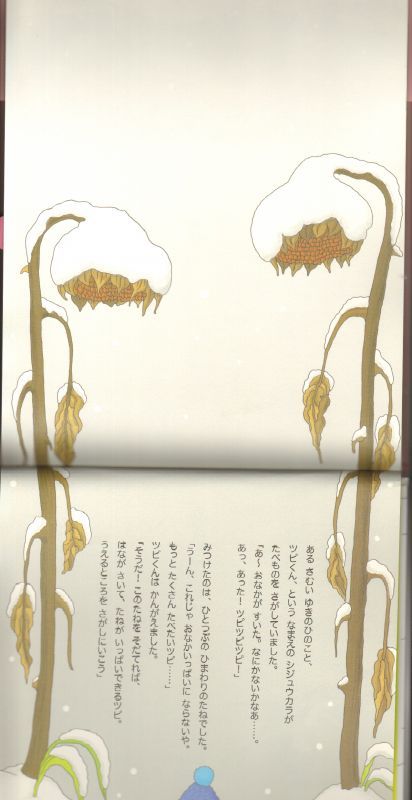 ある さむい ゆきのひのこと、
ツピくん、という なまえの シジュウカラが
たべものを さがしていました。
「あ〜 おなかが すいた。なにかないかなあ……。
あっ、あった！ ツピツピツピー！」
みつけたのは、ひとつぶの ひまわりのたねでした。
「うーん、これじゃ おなかいっぱいに ならないや。
もっと たくさん たべたいツピ……」
ツピくんは かんがえました。
「そうだ！ このたねを そだてれば、
はなが さいて、たねが いっぱいできるツピ。
うえるところを さがしにいこう」